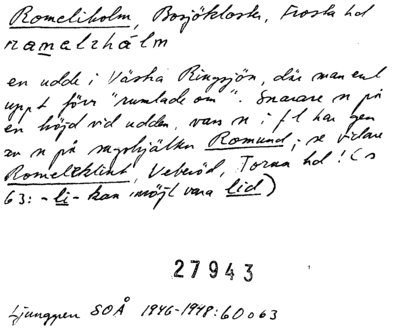 Romeliholm, Bosjökloster, Frosta hd
ramelzhálm
en udde i Västra Ringsjön, där man enl
uppt förr "rumlade om". Snarare n på
en höjd vid udden, vars n i f l har gen
av n på sagohjälten Romund; se vidare
Romeleklint, Veberöd, Torna hd! (s
63: -li- kan möjl vara lid)
27943
Ljunggren SOÅ 1946-1948:60 o 63